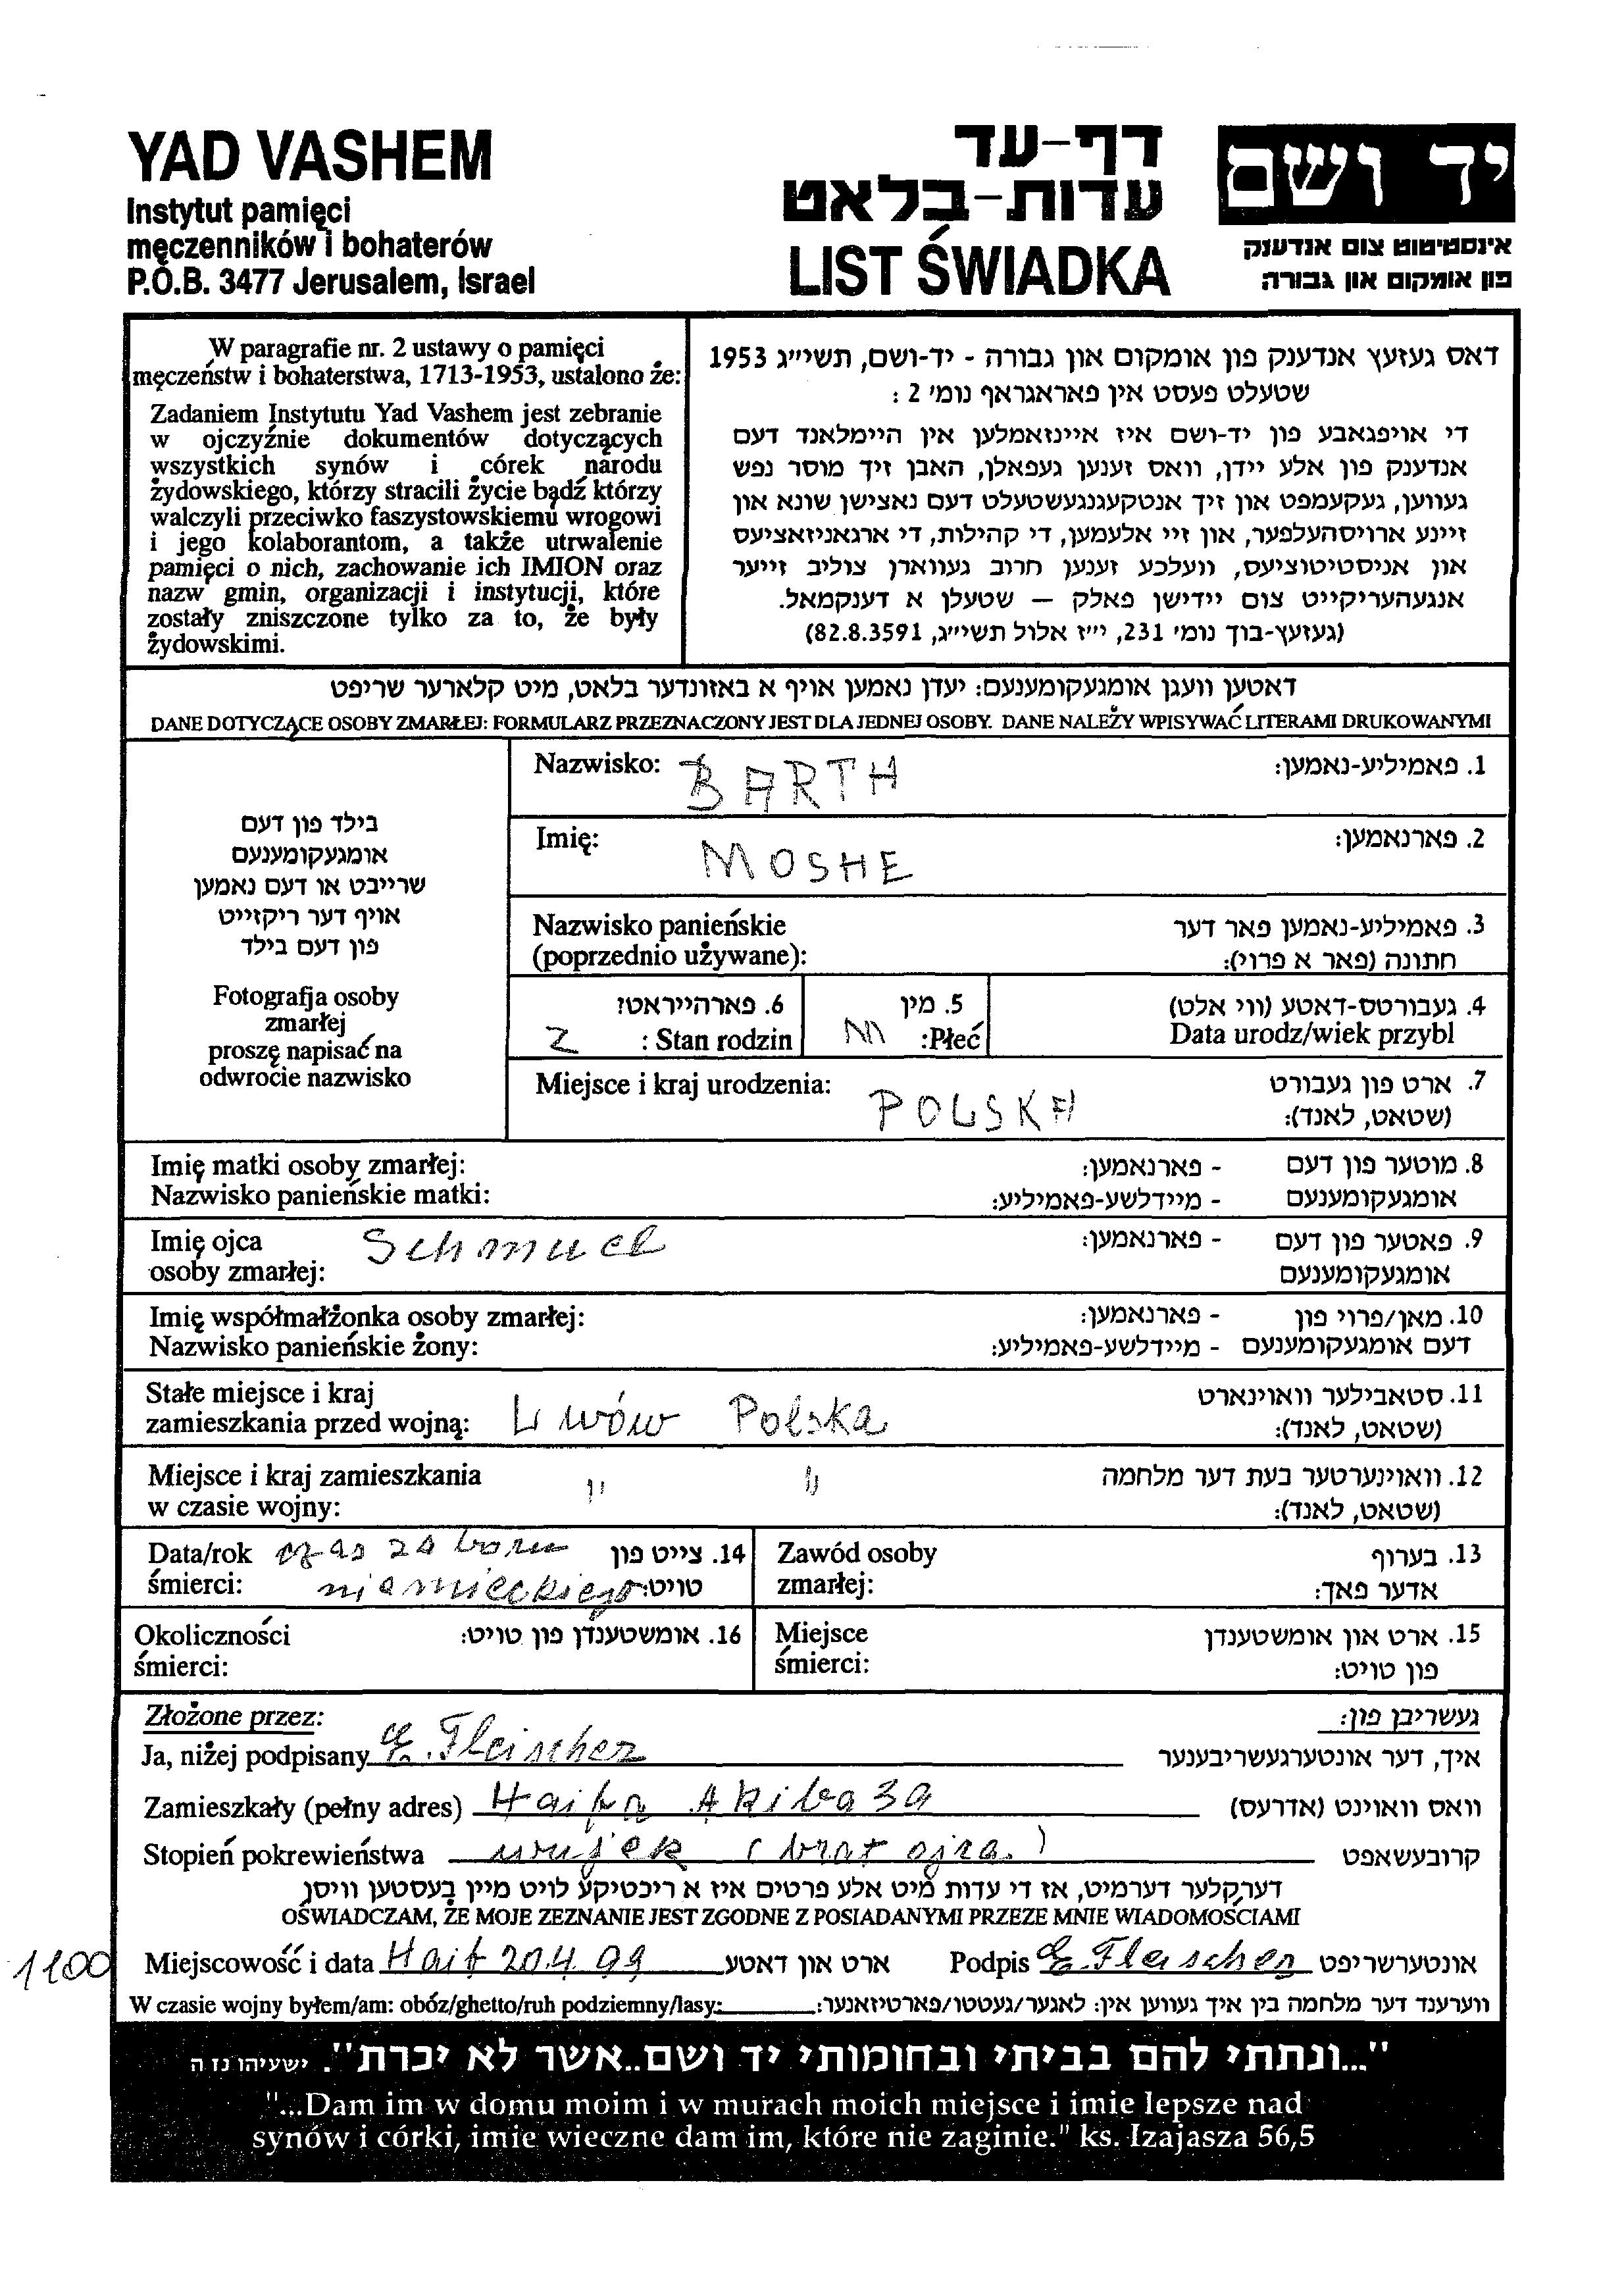 YAD VASHEM
Instytut pamięci
męczenników i bohaterów
P.O.B. 3477 Jerusalem, Israel
דף-עד
עדות-בלאט
LIST ŚWIADKA
יד ושם
אינסטיטוט צום אנדענק
פון אומקום און גבורה
W paragrafie nr. 2 ustawy o pamięci
męczeństw i bohaterstwa, 1713-1953, ustalono że:
Zadaniem Instytutu Yad Vashem jest zebranie
w ojczyźnie dokumentów dotyczących
wszystkich synów i córek narodu
żydowskiego, którzy stracili życie bądź którzy
walczyli przeciwko faszystowskiemu wrogowi
i jego kolaborantom, a także utrwalenie
pamięci o nich, zachowanie ich IMION oraz
nazw gmin, organizacji i instytucji, które
zostały zniszczone tylko za to, że były
żydowskimi.
דאס געזעץ אנדענק פון אומקום און גבורה - יד-ושם, תשי״ג 1953
שטעלט פעסט אין פאראגראף נומ׳ 2 :
די אויפגאבע פון יד-ושם איז איינזאמלען אין היימלאנד דעם
אנדענק פון אלע יידן, וואס זענען געפאלן, האבן זיך מוסר נפש
געווען, געקעמפט און זיך אנטקעגנגעשטעלט דעם נאצישן שונא און
זיינע ארויסהעלפער, און זיי אלעמען, די קהילות, די ארגאניזאציעס
און אניסטיטוציעס, וועלכע זענען חרוב געווארן צוליב זייער
אנגעהעריקייט צום יידישן פאלק – שטעלן א דענקמאל.
(געזעץ-בוך נומ׳ 231, י״ז אלול תשי״ג, 82.8.3591)
דאטען וועגן אומגעקומענעם: יעדן נאמען אויף א באזונדער בלאט, מיט קלארער שריפט
DANE DOTYCZĄCE OSOBY ZMARŁEJ: FORMULARZ PRZEZNACZONY JEST DLA JEDNEJ OSOBY. DANE NALEŻY WPISYWAĆ LITERAMI DRUKOWANYMI
בילד פון דעם
אומגעקומענעם
שרייבט או דעם נאמען
אויף דער ריקזייט
פון דעם בילד
Fotografja osoby
zmarłej
proszę napisać na
odwrocie nazwisko
Nazwisko: BARTH 1. פאמיליע-נאמען:
Imię: MOSHE 2. פארנאמען:
Nazwisko panieńskie 3. פאמיליע-נאמען פאר דער
(poprzednio używane): חתונה (פאר א פרוי):
6. פארהייראט? 5. מין 4. געבורטס-דאטע (ווי אלט)
Z : Stan rodzin M :Płeć Data urodz/wiek przybl
Miejsce i kraj urodzenia: POLSKA 7. ארט פון געבורט
(שטאט, לאנד):
Imię matki osoby zmarłej: - פארנאמען: 8. מוטער פון דעם
Nazwisko panieńskie matki: - מיידלשע-פאמיליע: אומגעקומענעם
Imię ojca Schmuel - פארנאמען: 9. פאטער פון דעם
osoby zmarłej: אומגעקומענעם
Imię współmałżonka osoby zmarłej: - פארנאמען: 10. מאן/פרוי פון
Nazwisko panieńskie żony: - מיידלשע-פאמיליע: דעם אומגעקומענעם
Stałe miejsce i kraj 11. סטאבילער וואוינארט
zamieszkania przed wojną: Lwów Polska (שטאט, לאנד):
Miejsce i kraj zamieszkania " " 12. וואוינערטער בעת דער מלחמה
w czasie wojny: (שטאט, לאנד):
Data/rok czas zaboru 14. צייט פון Zawód osoby 13. בערוף
śmierci: niemieckiego טויט: zmarłej: אדער פאך:
Okoliczności 16. אומשטענדן פון טויט: Miejsce 15. ארט און אומשטענדן
śmierci: śmierci: פון טויט:
Złożone przez: געשריבן פון:
Ja, niżej podpisany E. Fleischer איך, דער אונטערגעשריבענער
Zamieszkały (pełny adres) Haifa Akiba 39 וואס וואוינט (אדרעס)
Stopień pokrewieństwa wujek (brat ojca) קרובעשאפט
דערקלער דערמיט, אז די עדות מיט אלע פרטים איז א ריכטיקע לויט מיין בעסטען וויסן
OŚWIADCZAM, ŻE MOJE ZEZNANIE JEST ZGODNE Z POSIADANYMI PRZEZE MNIE WIADOMOŚCIAMI
1100 Miejscowość i data Haif 20.4.99 ארט און דאטע Podpis E. Fleischer אונטערשריפט
W czasie wojny byłem/am: obóz/ghetto/ruh podziemny/lasy: ווערענד דער מלחמה בין איך געווען אין: לאגער/געטטו/פארטיזאנער:
"...ונתתי להם בביתי ובחומותי יד ושם..אשר לא יכרת". ישעיהו נז ה
"...Dam im w domu moim i w murach moich miejsce i imie lepsze nad
synów i córki, imie wieczne dam im, które nie zaginie." ks. Izajasza 56,5